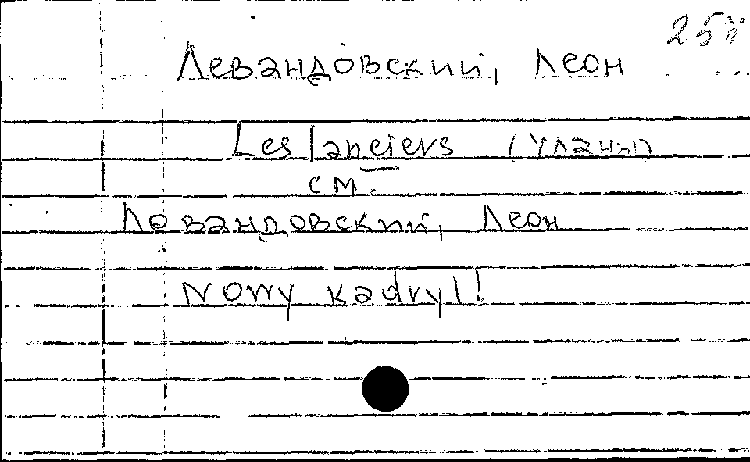 Левандовский, Леон
Les lanciers (Уланы)
см.
Левандовский, Леон
Nowy kadryl!